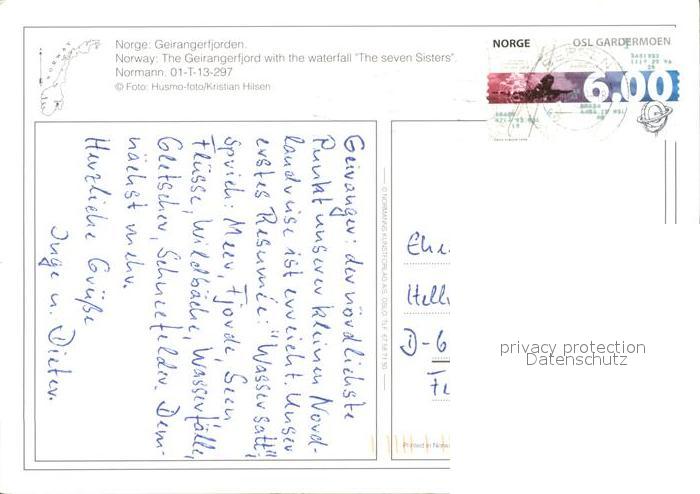 Norge: Geirangerfjorden.
Norway: The Geirangerfjord with the waterfall "The seven Sisters".
Normann. 01-T-13-297
© Foto: Husmo-foto/Kristian Hilsen
NORWAY
NORGE
OSL GARDERMOEN
6.00
Geiranger: der nördlichste
Punkt unserer kleinen Nord-
landreise ist erreicht. Unser
erstes Resumée: "Wasser satt",
sprich: Meer, Fjorde, Seen
Flüsse, Wildbäche, Wasserfälle,
Gletscher, Schneefelder. Dem-
nächst mehr.
Herzliche Grüße
Inge u. Dieter.
© NORMANNS KUNSTFORLAG A/S, OSLO. TLF.
Ehe
Hell
D-6
Fe
Printed in Norw
privacy protection
Datenschutz